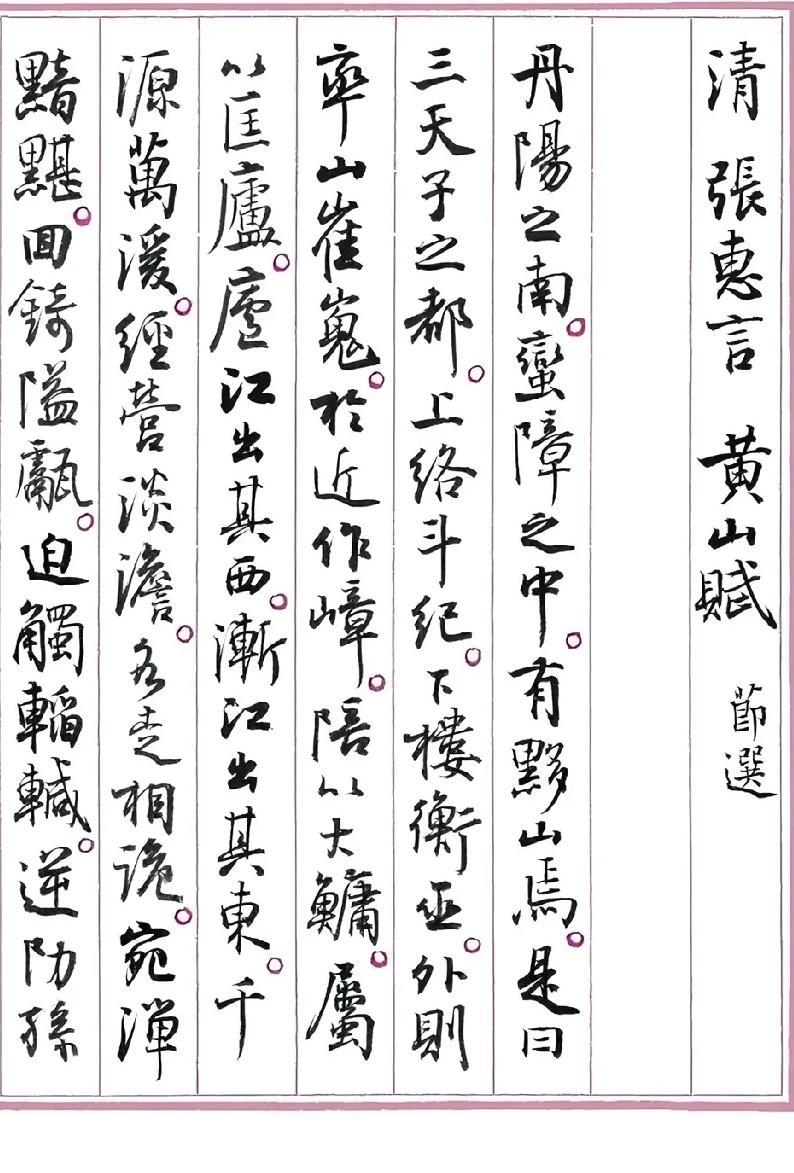 清 張惠言 黃山賦 節選
丹陽之南。蠻障之中。有黟山焉。是曰
三天子之都。上絡斗紀。下樓衡巫。外則
率山崔嵬。於近作嶂。陪以大鱅。屬
以匡廬。廬江出其西。漸江出其東。千
源萬湲。經營淡澹。各走相詭。宛潬
黯黮。回錡隘甗。迫觸轁轗。逆阞孫